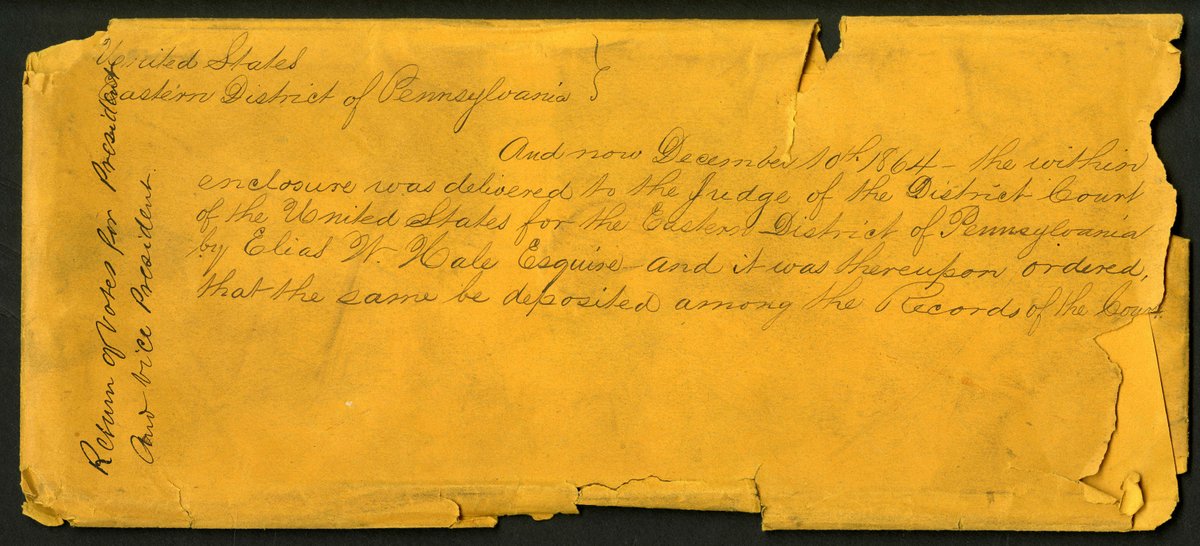 United States
Eastern District of Pennsylvania }
And now December 10th 1864 - the within
enclosure was delivered to the Judge of the District Court
of the United States for the Eastern District of Pennsylvania
by Elias W. Hale Esquire - and it was thereupon ordered,
that the same be deposited among the Records of the Court.
Return of Votes for President
And Vice President.